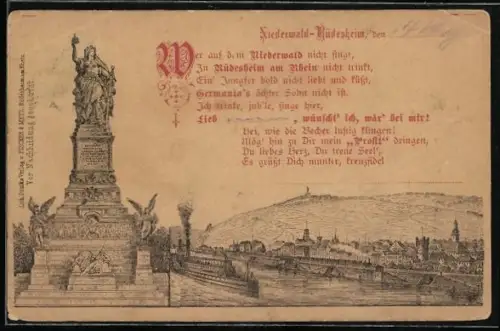 Niederwald-Rüdesheim, den
Wer auf dem Niederwald nicht singt,
Zu Rüdesheim am Rhein nicht trinkt,
Ein Jungfer hold nicht liebt und küßt,
Germania's ächter Sohn nicht ist.
Ich trinke, jub'le, singe hier,
Lieb , wünscht' ich, wär' bei mir!
Hei, wie die Becher lustig klingen!
Mög' hin zu Dir mein „Prosit“ dringen,
Du liebes Herz, Du treue Seel',
Es grüßt Dich munter, kreuzfidel
Vor Nachbildung geschützt.